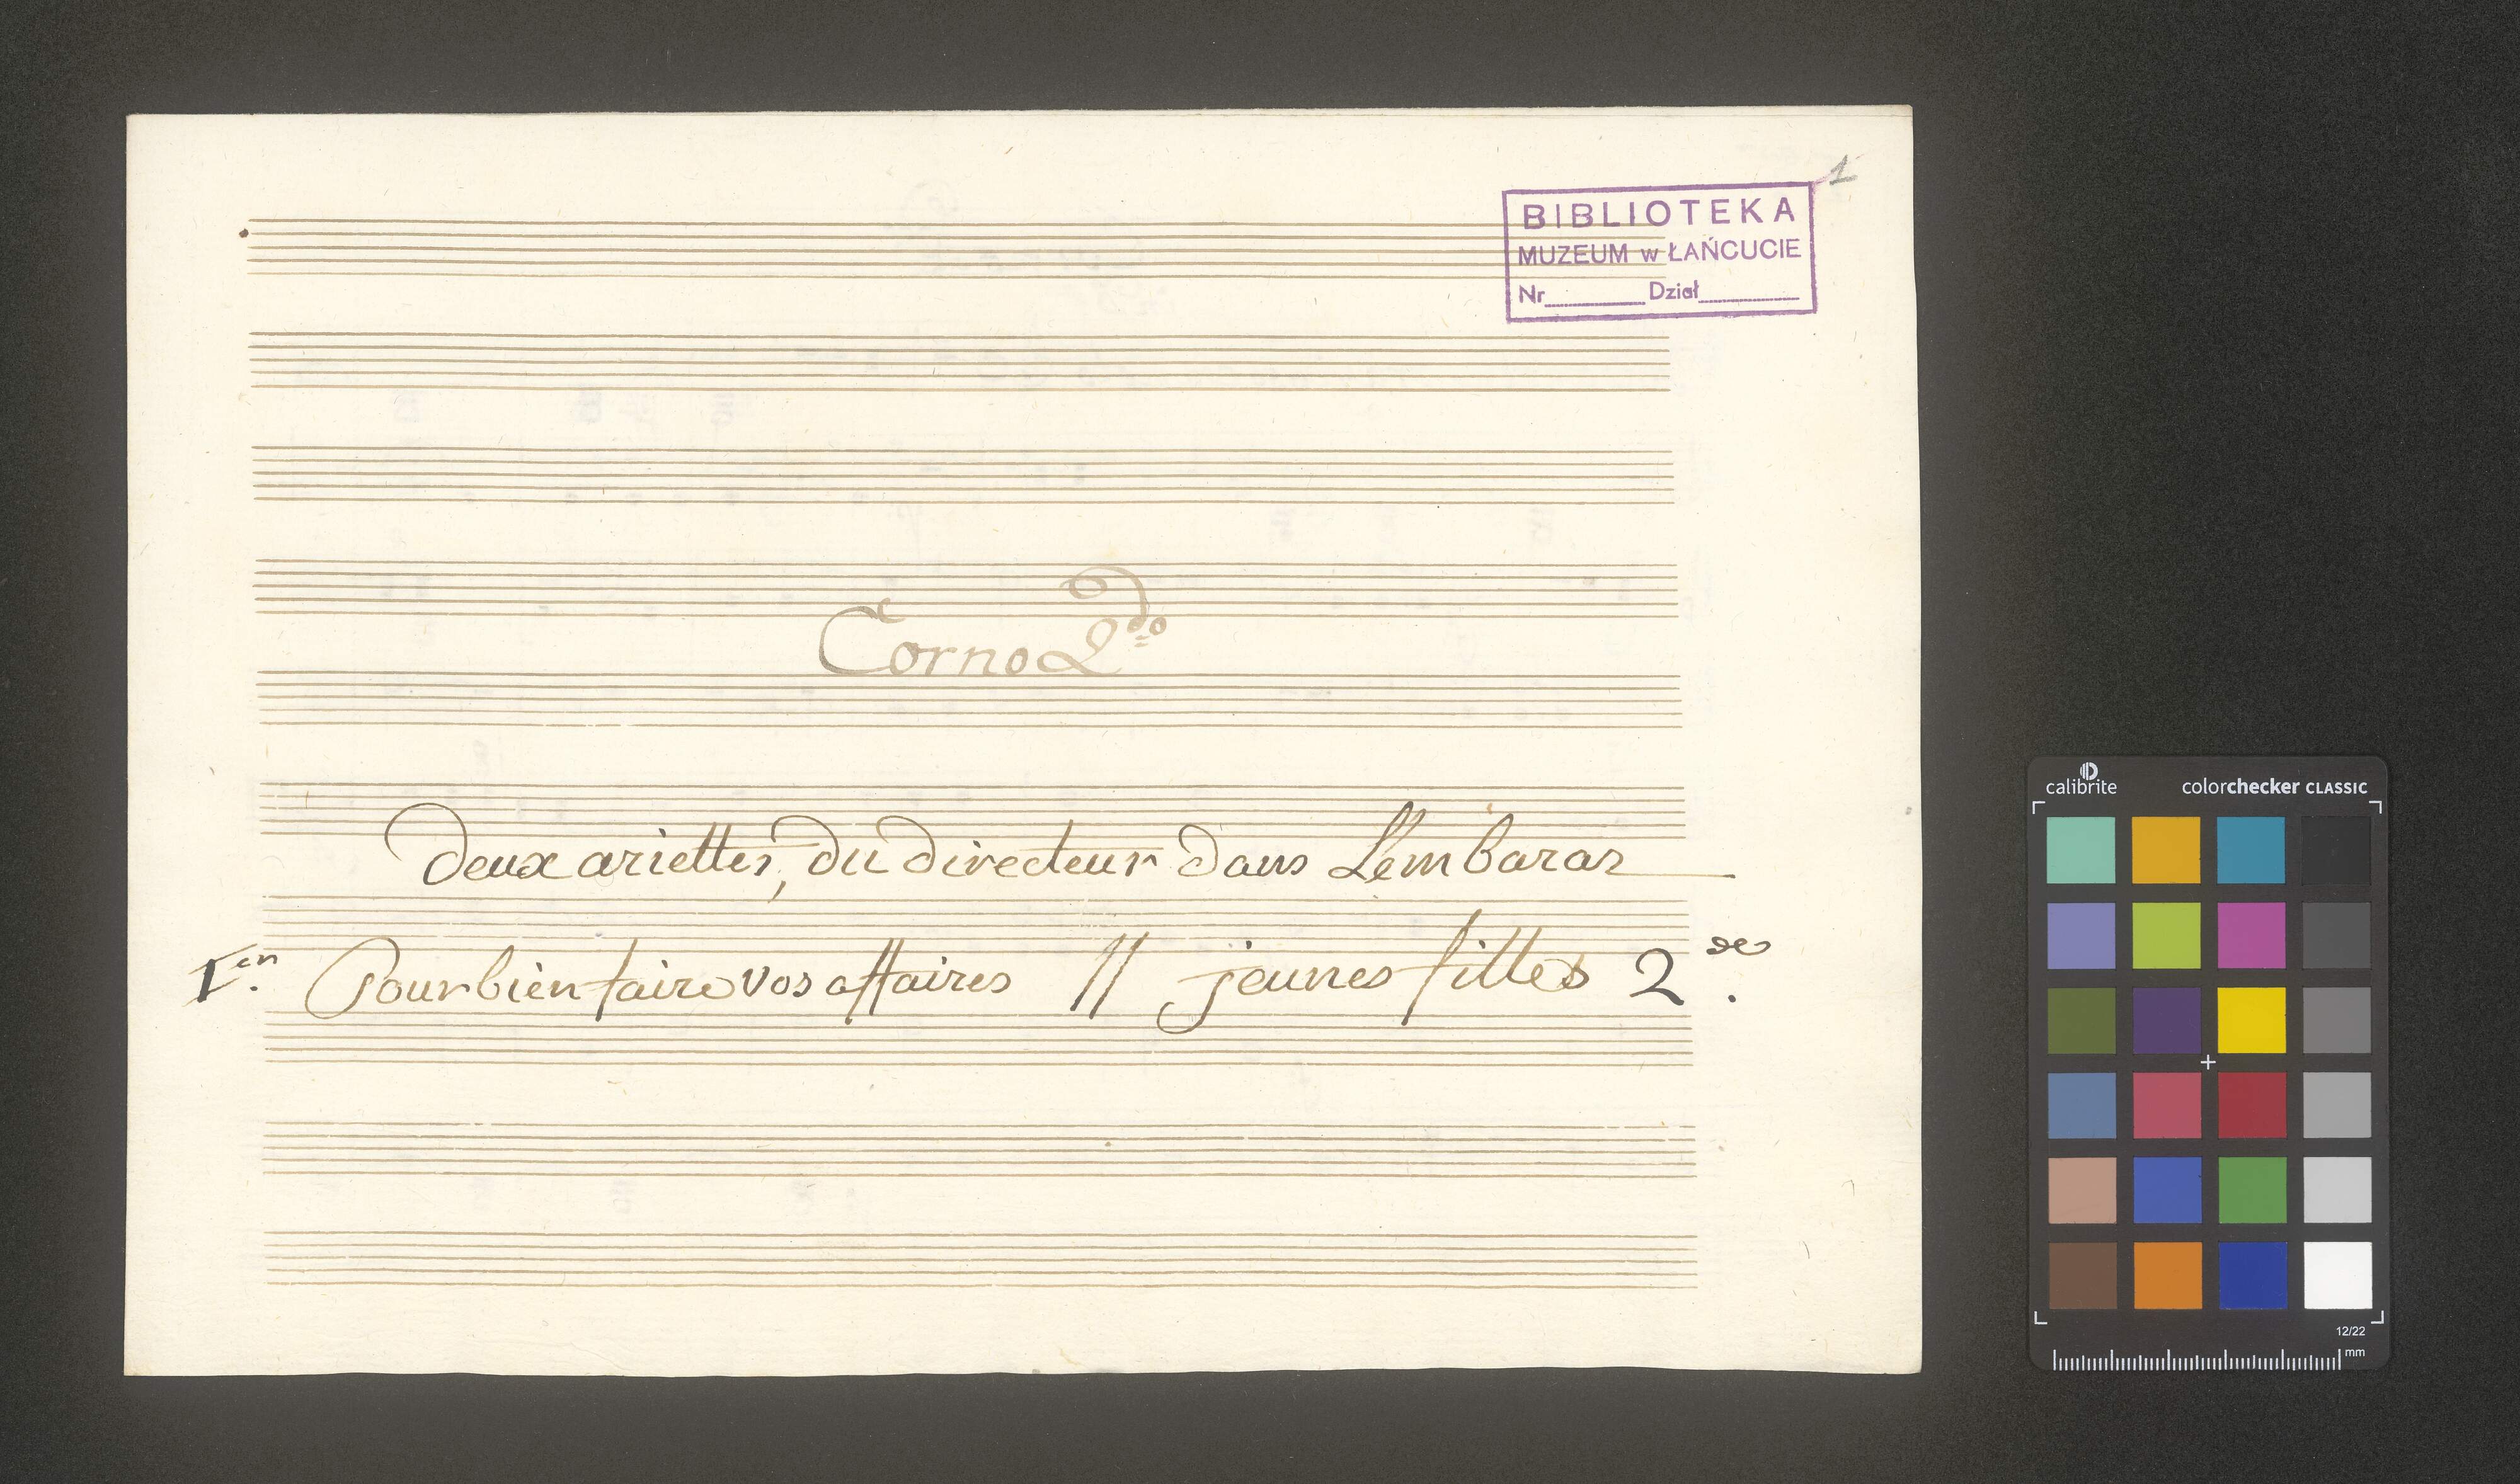 1
BIBLIOTEKA
MUZEUM w ŁAŃCUCIE
Nr Dział
Corno 2do
deux ariettes, du directeur dans Lembaras
1.en Pour bien faire vos affaires // jeunes filles 2.de
calibrite colorchecker CLASSIC
12/22
mm